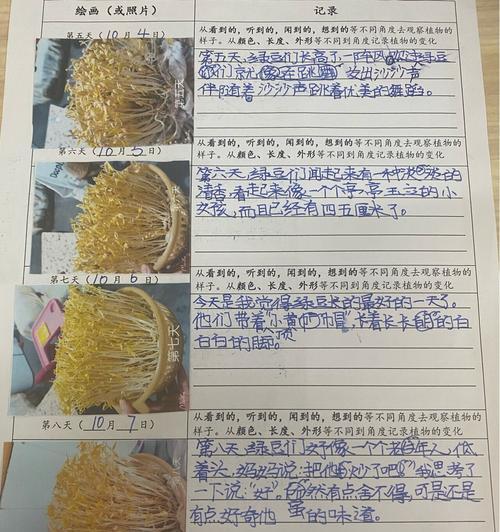 绘画（或照片） 记录
第五天（10月4日）
从看到的，听到的，闻到的，想到的等不同角度去观察植物的
样子。从颜色、长度、外形等不同到角度记录植物的变化
第五天，绿豆们长高了，一阵风 绿豆
们就 像在跳 发出沙沙声
伴随着沙沙声跳着优美的舞蹈。
第五天
第六天（10月5日）
从看到的，听到的，闻到的，想到的等不同角度去观察植物的
样子。从颜色、长度、外形等不同到角度记录植物的变化
第六天，绿豆们闻起来有一种淡淡的
清香，看起来像一个个亭亭玉立的小
女孩，而且已经有四五厘米了。
第七天（10月6日）
从看到的，听到的，闻到的，想到的等不同角度去观察植物的
样子。从颜色、长度、外形等不同到角度记录植物的变化
今天是我觉得绿豆长的最好的一天了。
他们带着“小黄帽”，长着长长的白
白的脚。
第七天
第八天（10月7日）
从看到的，听到的，闻到的，想到的等不同角度去观察植物的
样子。从颜色、长度、外形等不同到角度记录植物的变化
第八天，绿豆们好像一个个老年人，低
着头，妈妈说：“把他们炒了吧”我思考了
一下说：“好”。虽然有点舍不得，可是还是
有点好奇他 的味道。